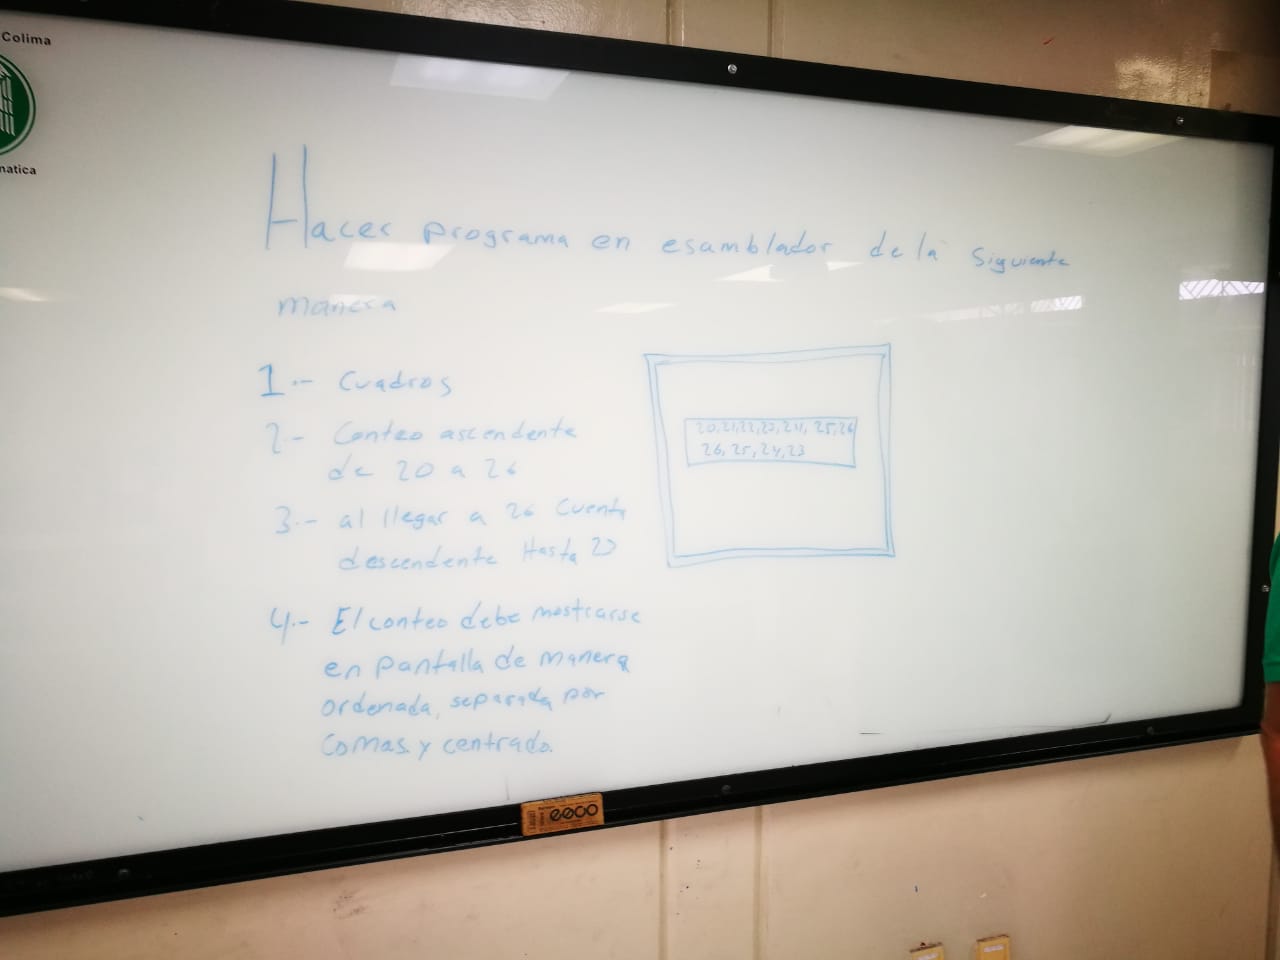 Colima
matica
Hacer programa en esamblador de la siguiente
manera
1.- Cuadros
2- Conteo ascendente
de 20 a 26
3.- al llegar a 26 Cuenta
descendente Hasta 20
4.- El conteo debe mostrarse
en pantalla de manera
ordenada, separada por
Comas y centrado.
20,21,22,23,24, 25,26
26, 25, 24, 23